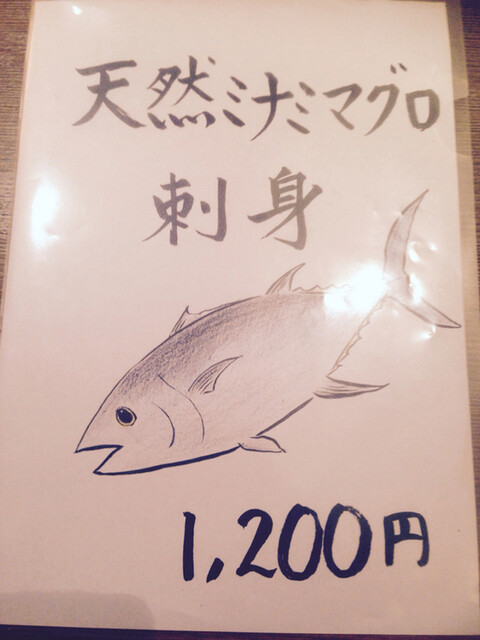 天然ミナミマグロ
刺身
1,200円